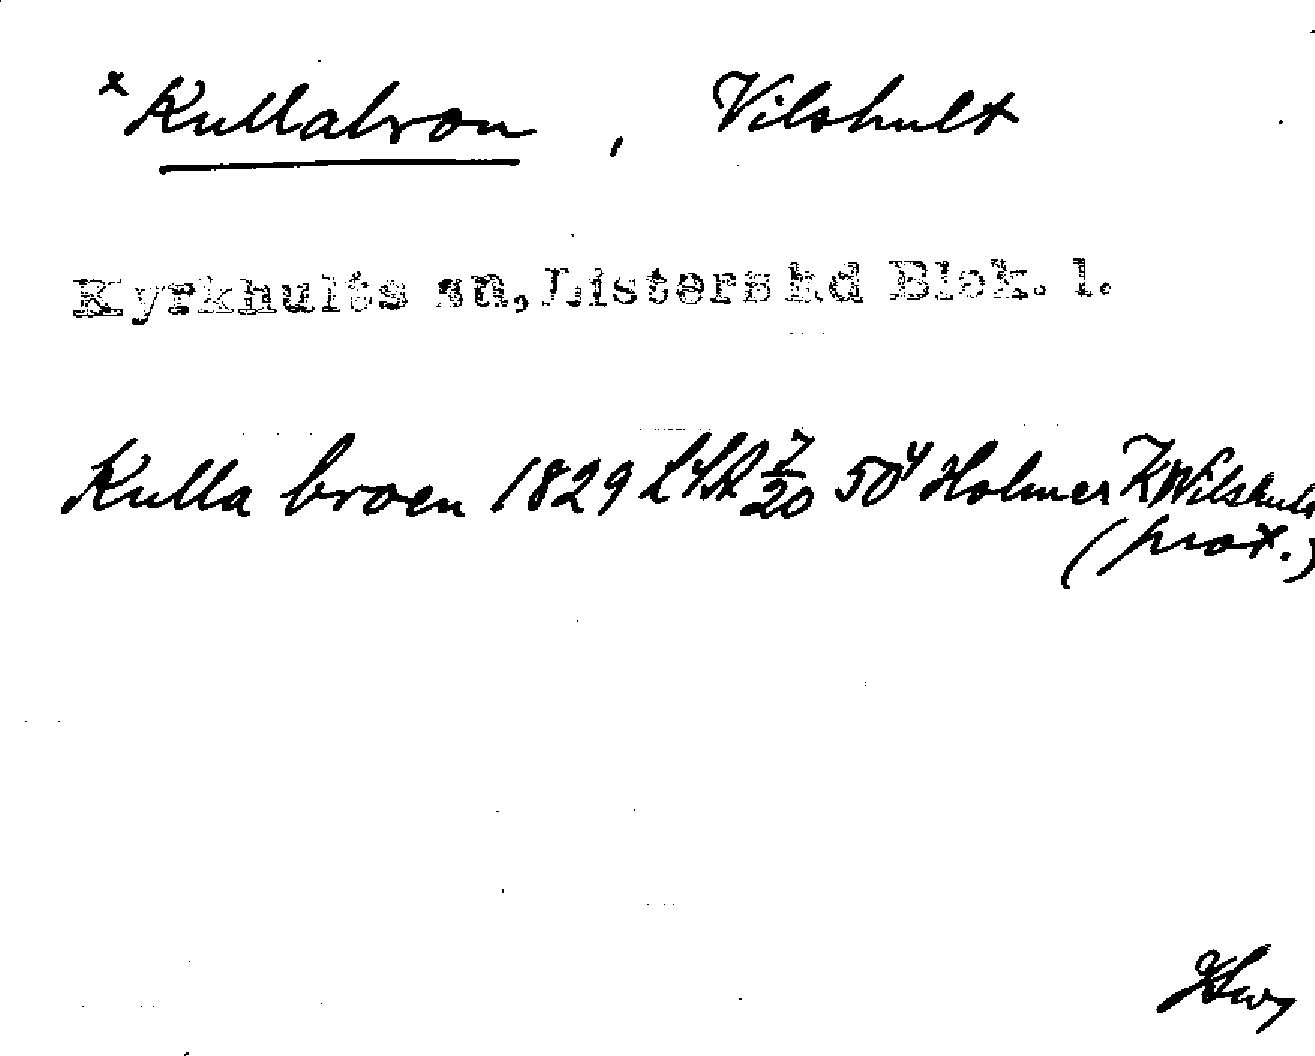 x Kullabron, Vilshult
Kyrkhults sn, Listers hd Blek. l.
Kulla broen 1829 LSA 7/20 504 Holmer Wilshult
(prot.)